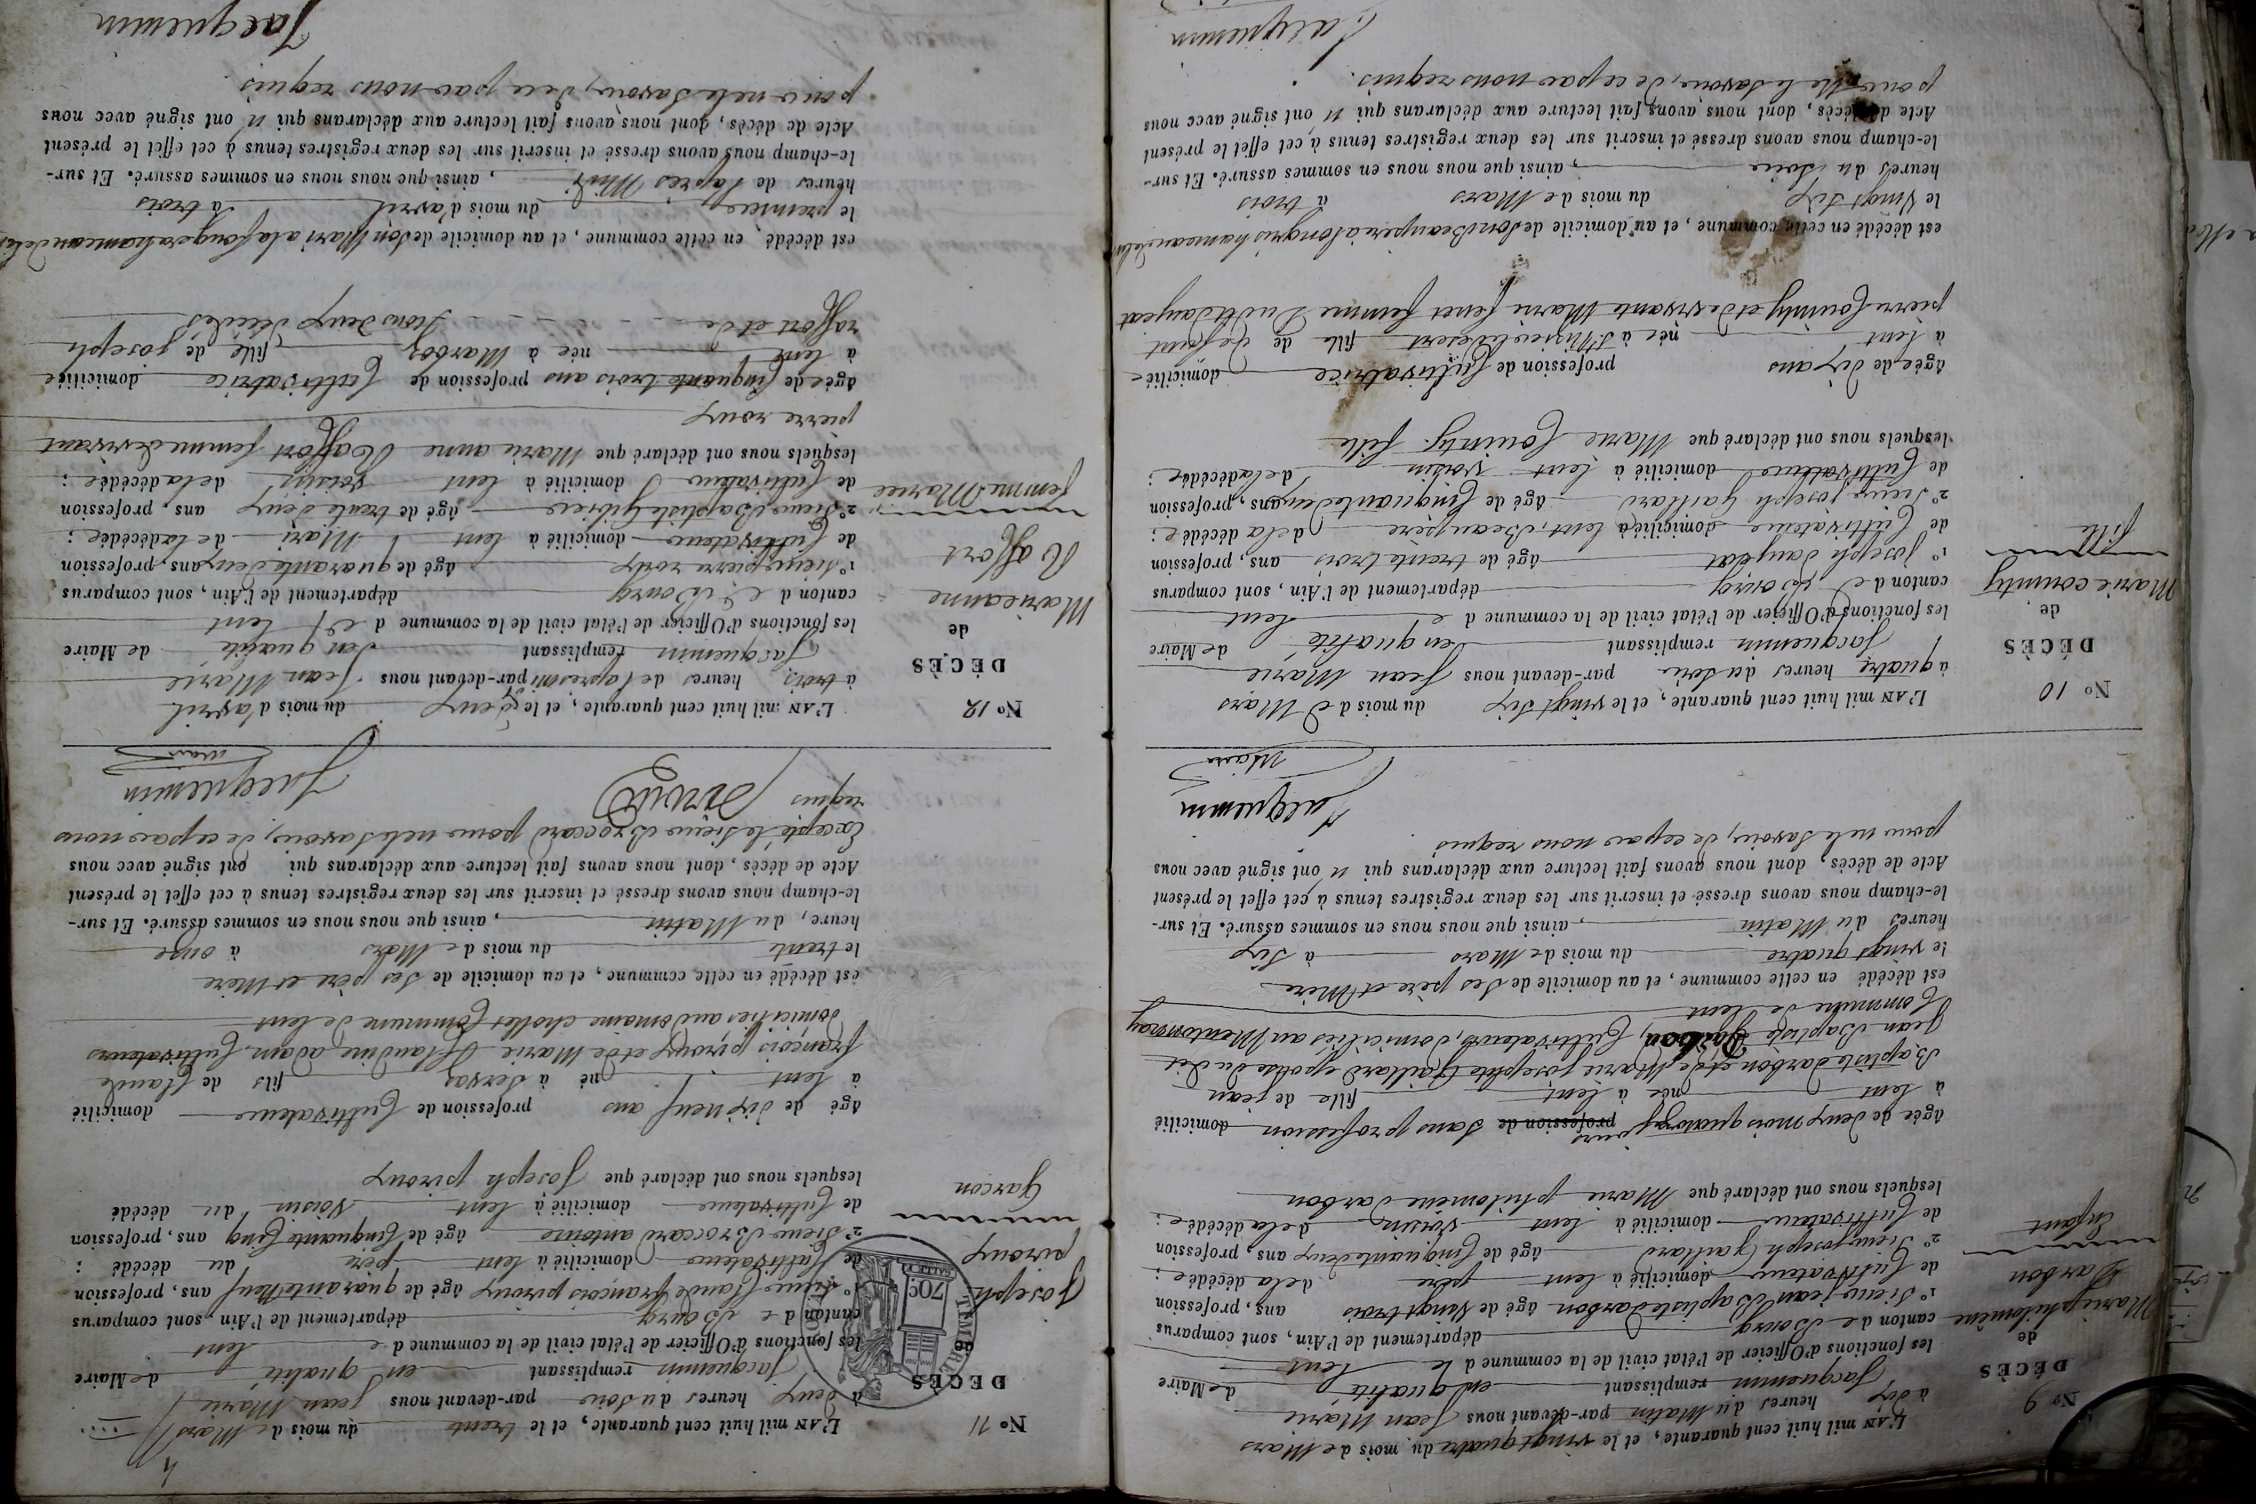 N° 9
DÉCÈS
de
Marie philomène
Darbon
Enfant
L'AN mil huit cent quarante, et le vingt quatre du mois de Mars
à dix heures du Matin par-devant nous Jean Marie
Jacquemin remplissant en qualité de Maire
les fonctions d'Officier de l'état civil de la commune de Lent
canton de Bourg département de l'Ain, sont comparus
1° Sieur jean Baptiste Darbon âgé de Vingt trois ans, profession
de Cultivateur domicilié à Lent père de la décédée ;
2° Sieur joseph Gaillard âgé de Cinquante deux ans, profession
de Cultivateur domicilié à Lent voisin de la décédée ;
lesquels nous ont déclaré que Marie philomène Darbon
âgée de deux mois quatorze jours profession de Sans profession domicilié
à Lent née à Lent fille de jean
Baptiste Darbon et de Marie josephte Gaillard epouse du dit
Jean Baptiste Darbon, Cultivateurs domiciliés au Mentonnay
Commune de Lent
est décédé en cette commune, et au domicile de Ses père et Mère
le vingt quatre du mois de Mars à Six
heures du Matin, ainsi que nous nous en sommes assuré. Et sur-
le-champ nous avons dressé et inscrit sur les deux registres tenus à cet effet le présent
Acte de décès, dont nous avons fait lecture aux déclarans qui n'ont signé avec nous
pour ne le Savoir, de ce par nous requis
Jacquemin
Maire
N° 10
DÉCÈS
de
Marie Couinty
fille
L'AN mil huit cent quarante, et le vingt Six du mois de Mars
à quatre heures du Soir par-devant nous Jean Marie
Jacquemin remplissant en qualité de Maire
les fonctions d'Officier de l'état civil de la commune de Lent
canton de Bourg département de l'Ain, sont comparus
1° Joseph Dangeat âgé de trente trois ans, profession
de Cultivateur domicilié à Lent, Beaupère de la décédée ;
2° Sieur joseph Gaillard âgé de Cinquante deux ans, profession
de Cultivateur domicilié à Lent voisin de la décédée ;
lesquels nous ont déclaré que Marie Couinty fille
âgée de dix ans profession de Cultivatrice domiciliée
à Lent née à fille de defunt
pierre Couinty et de vivante Marie femme Dudit Dangeat
est décédé en cette commune, et au domicile de Son Beaupère à Longris hameau de
le Vingt Six du mois de Mars à trois
heures du Soir, ainsi que nous nous en sommes assuré. Et sur-
le-champ nous avons dressé et inscrit sur les deux registres tenus à cet effet le présent
Acte de décès, dont nous avons fait lecture aux déclarans qui n'ont signé avec nous
pour ne le Savoir, de ce par nous requis.
Jacquemin
N° 11
DÉCÈS
de
Joseph
piroux
Garcon
TIMBRE
70c
L'AN mil huit cent quarante, et le trente du mois de Mars
à deux heures du Soir par-devant nous Jean Marie
Jacquemin remplissant en qualité de Maire
les fonctions d'Officier de l'état civil de la commune de Lent
canton de Bourg département de l'Ain, sont comparus
1° Sieur Claude françois piroux âgé de quarante Neuf ans, profession
de Cultivateur domicilié à Lent père du décédé ;
2° Sieur Broccard antoine âgé de Cinquante Cinq ans, profession
de Cultivateur domicilié à Lent Voisin du décédé
lesquels nous ont déclaré que Joseph piroux
âgé de dix neuf ans profession de Cultivateur domicilié
à Lent né à Servas fils de Claude
françois piroux et de Marie Claudine adam, Cultivateurs
domiciliés au domaine chollet Commune de Lent
est décédé en cette commune, et au domicile de Ses père et Mère
le trente du mois de Mars à onze
heure, du Matin, ainsi que nous nous en sommes assuré. Et sur-
le-champ nous avons dressé et inscrit sur les deux registres tenus à cet effet le présent
Acte de décès, dont nous avons fait lecture aux déclarans qui ont signé avec nous
Excepté le Sieur Broccard pour ne le Savoir, de ce par nous
requis
Jacquemin
maire
N° 12
DÉCÈS
de
Marie anne
Raffort
femme Mariée
L'AN mil huit cent quarante, et le deux du mois d'avril
à trois heures de l'apres midi par-devant nous Jean Marie
Jacquemin remplissant en qualité de Maire
les fonctions d'Officier de l'état civil de la commune de Lent
canton de Bourg département de l'Ain, sont comparus
1° Sieur pierre roux âgé de quarante deux ans, profession
de Cultivateur domicilié à Lent Mari de la décédée ;
2° Sieur Baptiste Gibriere âgé de trente deux ans, profession
de Cultivateur domicilié à Lent voisin de la décédée ;
lesquels nous ont déclaré que Marie anne Raffort femme de vivant
pierre roux
âgée de Cinquante trois ans profession de Cultivatrice domiciliée
à Lent née à Marboz fille de joseph
raffort et de - - - - - tous deux décédés
est décédé en cette commune, et au domicile de Son Mari a la fouge hameau de
le premier du mois d'avril à trois
heures de l'apres Midi, ainsi que nous nous en sommes assuré. Et sur-
le-champ nous avons dressé et inscrit sur les deux registres tenus à cet effet le présent
Acte de décès, dont nous avons fait lecture aux déclarans qui n'ont signé avec nous
pour ne le Savoir, de ce par nous requis
Jacquemin